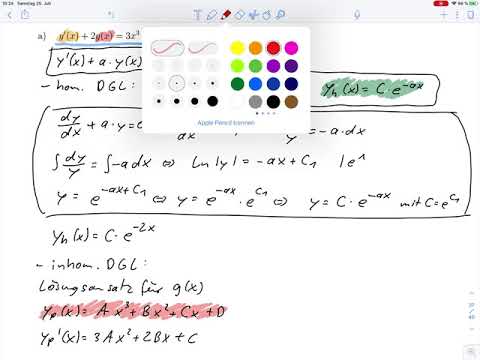 15:24 Samstag 25. Juli
86 %
a) y'(x) + 2y(x) = 3x³
y'(x) + a · y(x)
– hom. DGL:
y_h(x) = C · e^(-ax)
dy/dx + a · y = 0
dx
y = -a · dx
Apple Pencil trennen
∫ dy/y = ∫ -a dx ⇔ ln|y| = -ax + C₁ | e^1
y = e^(-ax+C₁) ⇔ y = e^(-ax) · e^(C₁) ⇔ y = C · e^(-ax) mit C = e^(C₁)
y_h(x) = C · e^(-2x)
– inhom. DGL:
Lösungsansatz für g(x)
y_p(x) = A x³ + Bx² + Cx + D
y_p'(x) = 3Ax² + 2Bx + C